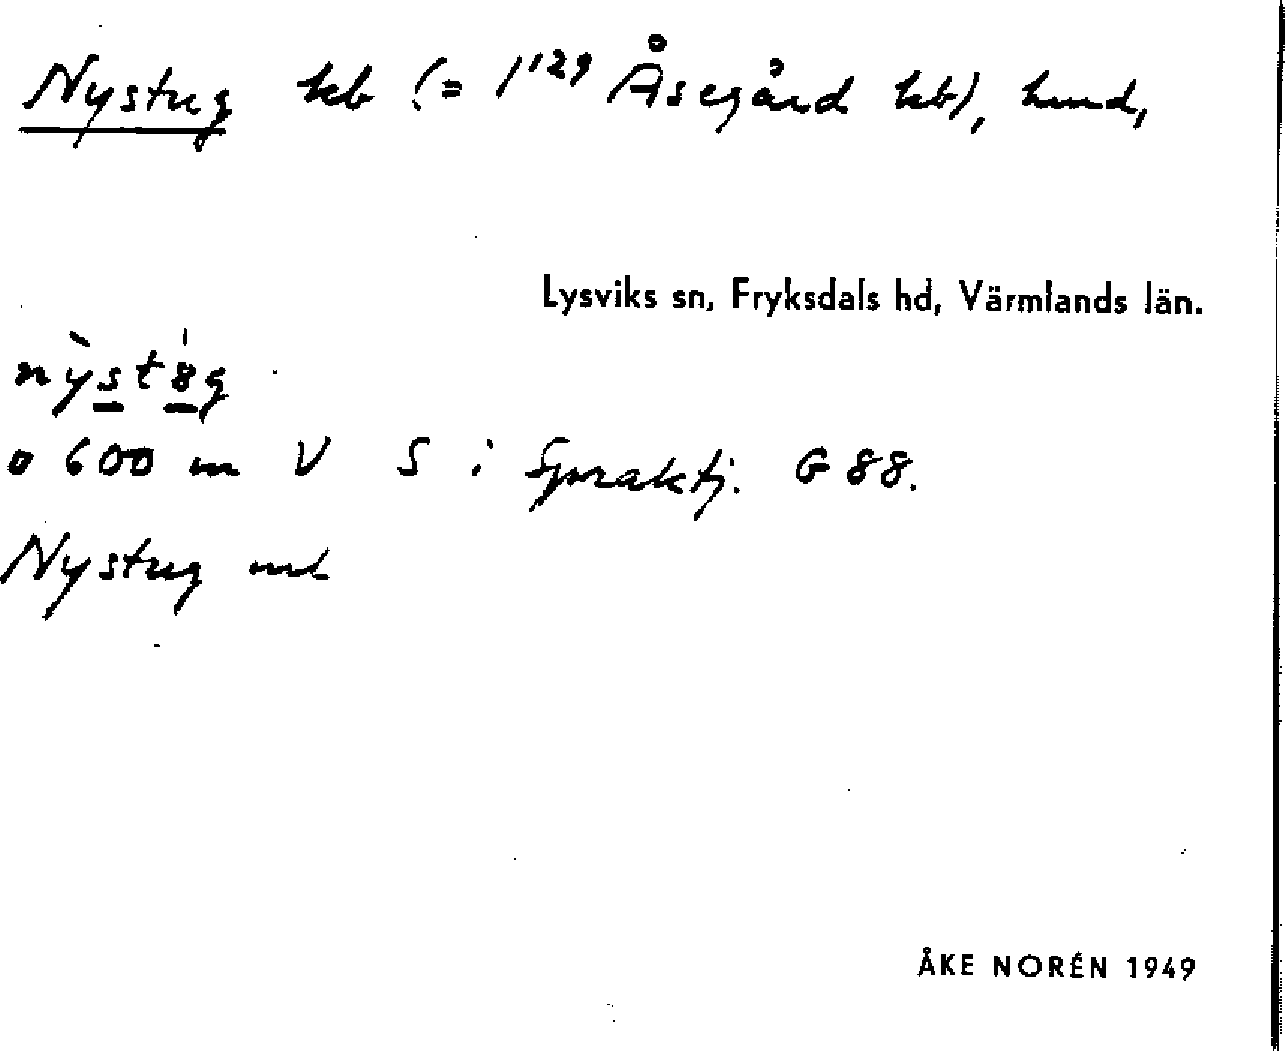 Nystug hb (= 1¹²⁹ Åsegård hb), hmd,
Lysviks sn, Fryksdals hd, Värmlands län.
nỳst8g
o 600 m V S i Spraktj. G 88.
Nystug
ÅKE NORÉN 1949